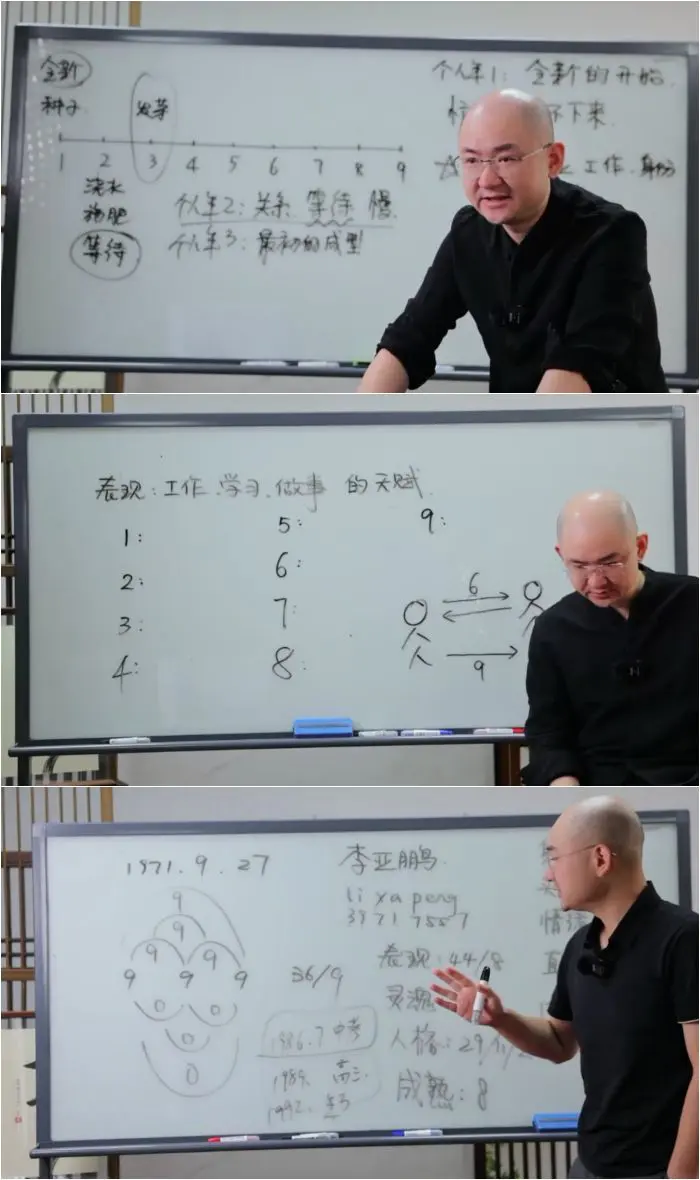 全新
个人年1：全新的开始
种子
发芽
下来
工作、身份
1 2 3 4 5 6 7 8 9
浇水
施肥
个人年2：关系、等待 慢
等待
个人年3：最初的成型
表现：工作、学习、做事 的天赋
1:
5:
9:
2:
6:
3:
7:
4:
8:
6
9
1971.9.27
李亚鹏
li ya peng
3971 7557
9
9
9 9
9 9 9
0 0
0
0
36/9
表现：44/8
情绪
灵魂
人格：29/11/2
成熟：8
1986.7 中考
1989. 高三
1992.